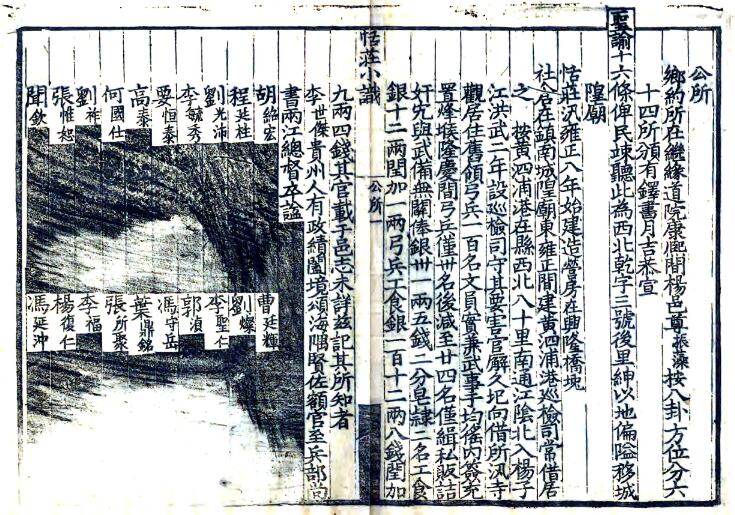 公所
鄉約所在繼緣道院康熙間楊邑尊振藻按八卦方位分六
十四所頒有鐸書月吉恭宣
聖諭十六條俾民竦聽此為西北乾字三號後里紳以地偏隘移城
隍廟
恬莊汛雍正八年始建造營房在興隆橋堍
社倉在鎮南城隍廟東雍正間建黃泗浦港巡檢司常借居
之 按黃泗浦港在縣西北八十里南通江陰北入楊子
江洪武二年設巡檢司守其要害官廨久圮向借所汛寺
觀居住舊領弓兵一百名文員實兼武事于均徭內簽充
置烽堠隆慶間弓兵僅卅名後減至廿四名僅緝私販詰
奸宄與武備無關俸銀卅一兩五錢二分皂隸二名工食
銀十二兩閏加一兩弓兵工食銀一百十二兩八錢閏加
恬莊小識 公所 一
九兩四錢其官載于邑志未詳茲記其所知者
李世傑貴州人有政績闔境頌海隅賢佐額官至兵部尚
書兩江總督卒諡
胡紹宏 曹廷輝
程廷柱 劉燦
劉光沛 李聖仁
李毓秀 郭湞
要恒泰 馮守岳
高泰 葉鼎銘
何國仕 張所聚
劉祚 李福
張惟恕 楊復仁
聞欽 馮延沖